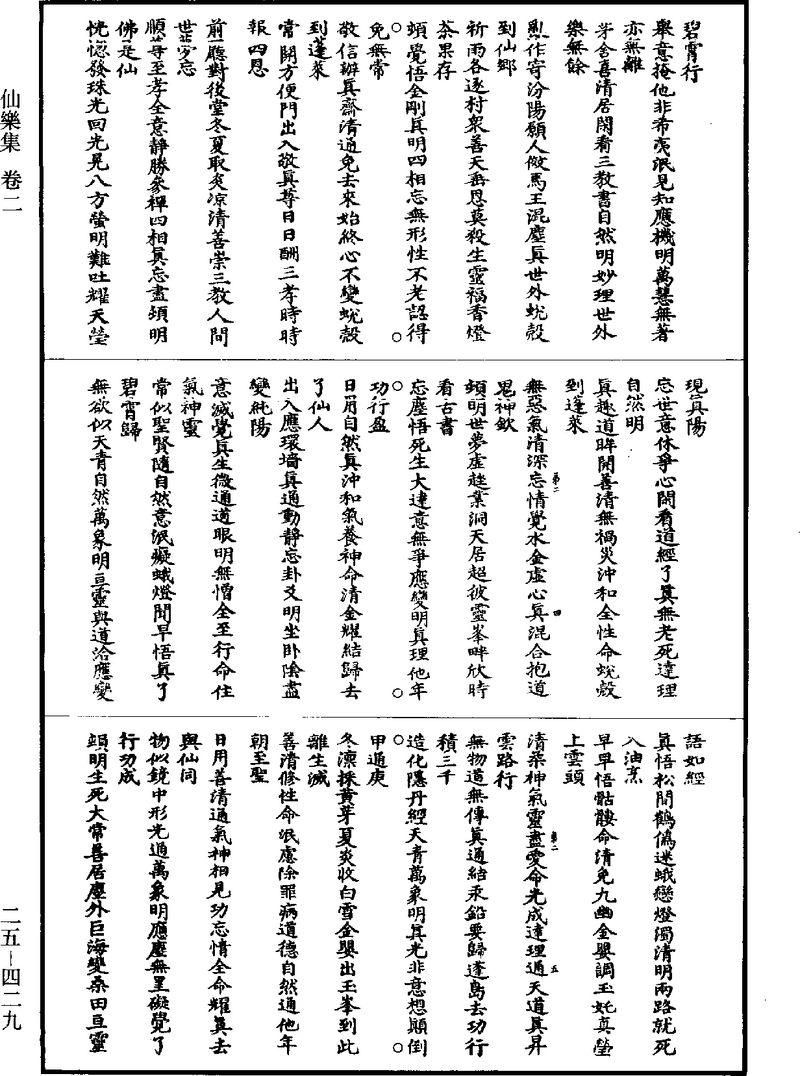 碧霄行
舉意掩他非希夷泯見知應機明萬慧無著
亦無離
茅舍喜清居閑看三教書自然明妙理世外
樂無餘
亂作寄汾陽願人倣馬王混塵真世外蛻殼
到仙鄉
祈雨各逐村眾善天垂恩莫殺生靈福香燈
茶果存
頓覺悟金剛真明四相忘無形性不老認得
免無常
敬信辦真齋清通免去來始終心不變蛻殼
到蓬萊
常開方便門出入敬真尊日日酬三孝時時
報四恩
前一應對後堂冬夏取炎凉清善崇三教人間
世世忘
順尊至孝全意靜勝參禪四相真忘盡頓明
佛是仙
恍惚發珠光回光晃八方螢明難吐耀天瑩
現真陽
忘世意休爭心閑看道經了真無老死達理
自然明
真趣道眸開善清無禍災沖和全性命蛻殼
到蓬萊
無惡氣清深忘情覺水金虛心真混合抱道
鬼神欽
頓明世夢虛趂業洞天居超彼靈峯畔欣時
看古書
忘塵悟死生大達意無爭應變明真理他年
功行盈
日用自然真沖和氣養神命清金耀結歸去
了仙人
出入應環墻真通動靜忘卦爻明坐卧陰盡
變純陽
意滅覺真生微通道眼明無憎全至行命住
氣神靈
常似聖賢隨自然意泯癡蛾燈聞早悟真了
碧霄歸
無欲似天青自然萬象明亘靈與道洽應變
語如經
真悟松間鶴僞迷蛾戀燈濁清明兩路就死
入油烹
早早悟骷髏命清免九幽金嬰調玉奼真瑩
上雲頭
清柔神氣靈盡愛命光成達理通天道真昇
雲路行
無物道無傳真通結汞鉛要歸蓬島去功行
積三千
造化隱丹經天青萬象明真光非意想顛倒
甲通庚
冬凛採黃芽夏炎收白雪金嬰出玉峯到此
離生滅
善清修性命泯慮除罪病道德自然通他年
朝至聖
日用善清通氣神相見功忘情全命耀真去
與仙同
物似鏡中形光通萬象明應塵無罣礙覺了
行功成
頓明生死大常善居塵外巨海變桑田亘靈
仙樂集 卷二
二五－四二九